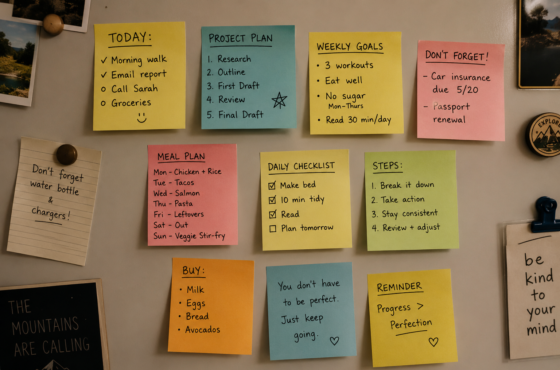 TODAY:
✓ Morning walk
✓ Email report
○ Call Sarah
○ Groceries
PROJECT PLAN
1. Research
2. Outline
3. First Draft
4. Review
5. Final Draft
WEEKLY GOALS
• 3 workouts
• Eat well
• No sugar
Mon-Thurs
• Read 30 min/day
DON'T FORGET!
- Car insurance
due 5/20
- Passport
renewal
EXPLORE
Don't forget
water bottle
&
chargers!
MEAL PLAN
Mon - Chicken + Rice
Tue - Tacos
Wed - Salmon
Thu - Pasta
Fri - Leftovers
Sat - Out
Sun - Veggie Stir-fry
DAILY CHECKLIST
☑ Make bed
☑ 10 min tidy
☑ Read
☐ Plan tomorrow
STEPS:
1. Break it down
2. Take action
3. Stay consistent
4. Review + adjust
be
kind
to
your
mind
THE
MOUNTAINS
ARE CALLING
BUY:
• Milk
• Eggs
• Bread
• Avocados
You don't have
to be perfect.
Just keep
going.
REMINDER
Progress >
Perfection